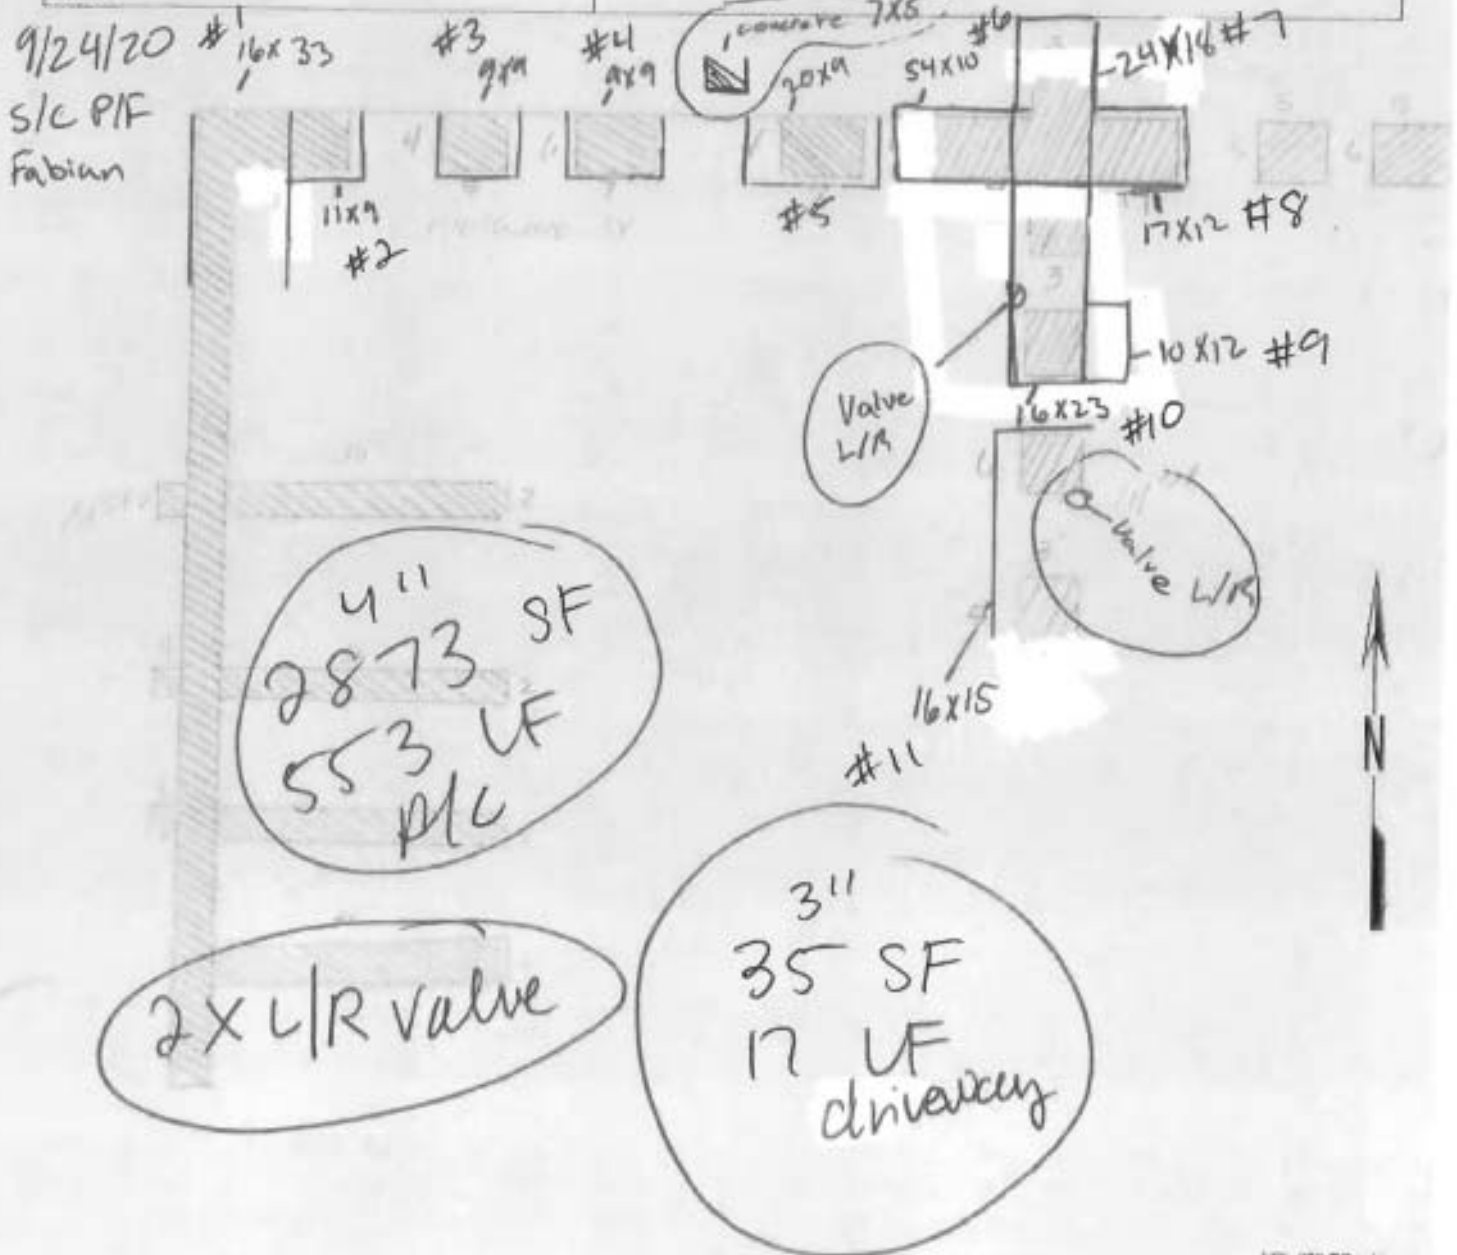 9/24/20
S/C P/F
Fabian
#1
16x33
#3
9x9
#4
9x9
concrete 7x5
20x9
#6
54x10
24x18 #7
11x9
#2
#5
17x12 #8
3
10x12 #9
Valve
L/R
16x23
#10
Valve L/R
16x15
#11
4"
2873 SF
553 LF
P/C
2x L/R valve
3"
35 SF
17 LF
driveway
N